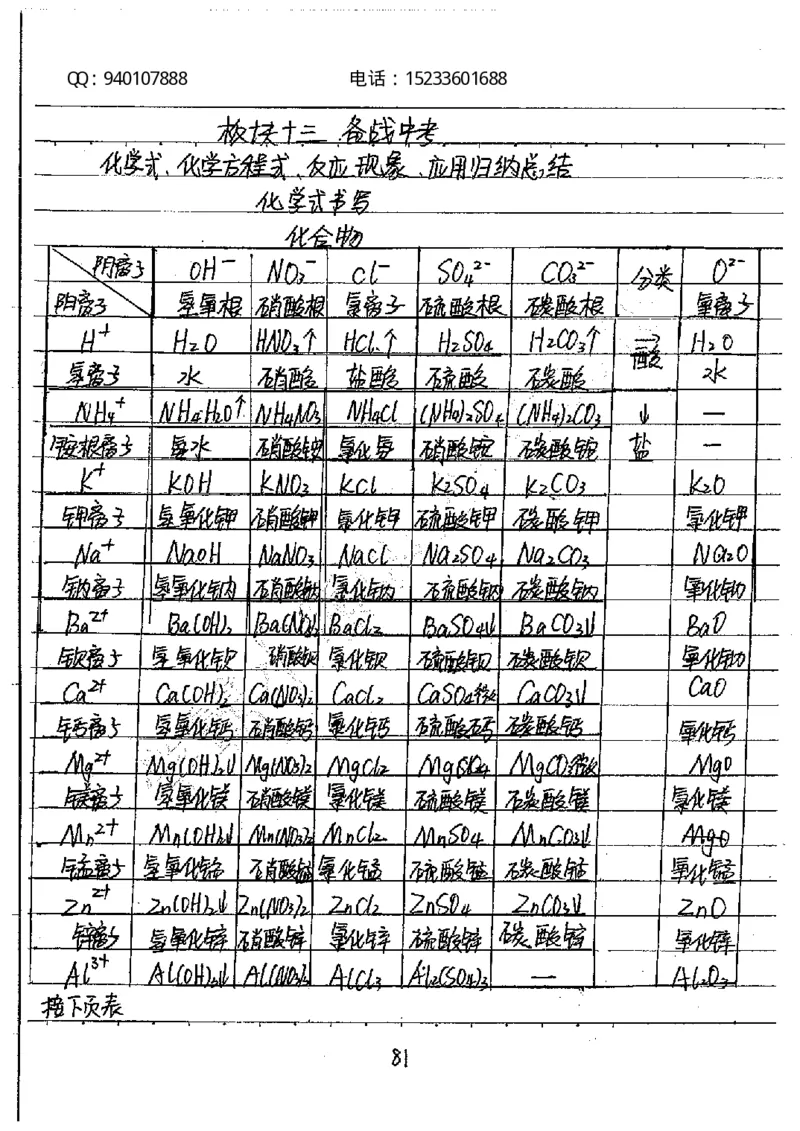 QQ：940107888 电话：15233601688
板块十三 备战中考
化学式、化学方程式、反应现象、应用归纳总结
化学式书写
化合物
阴离子 OH⁻ NO₃⁻ Cl⁻ SO₄²⁻ CO₃²⁻ 分类 O²⁻
阳离子 氢氧根 硝酸根 氯离子 硫酸根 碳酸根 氧离子
H⁺ H₂O HNO₃↑ HCl↑ H₂SO₄ H₂CO₃↑ → H₂O
氢离子 水 硝酸 盐酸 硫酸 碳酸 酸 水
NH₄⁺ NH₄H₂O↑ NH₄NO₃ NH₄Cl (NH₄)₂SO₄ (NH₄)₂CO₃ ↓ —
铵根离子 氨水 硝酸铵 氯化氨 硝酸铵 碳酸铵 盐 —
K⁺ KOH KNO₃ KCl K₂SO₄ K₂CO₃ K₂O
钾离子 氢氧化钾 硝酸钾 氯化钾 硫酸钾 碳酸钾 氧化钾
Na⁺ NaOH NaNO₃ NaCl Na₂SO₄ Na₂CO₃ Na₂O
钠离子 氢氧化钠 硝酸钠 氯化钠 硫酸钠 碳酸钠 氧化钠
Ba²⁺ Ba(OH)₂ Ba(NO₃)₂ BaCl₂ BaSO₄↓ BaCO₃↓ BaO
钡离子 氢氧化钡 硝酸钡 氯化钡 硫酸钡 碳酸钡 氧化钡
Ca²⁺ Ca(OH)₂ Ca(NO₃)₂ CaCl₂ CaSO₄微 CaCO₃↓ CaO
钙离子 氢氧化钙 硝酸钙 氯化钙 硫酸钙 碳酸钙 氧化钙
Mg²⁺ Mg(OH)₂↓ Mg(NO₃)₂ MgCl₂ MgSO₄ MgCO₃微 MgO
镁离子 氢氧化镁 硝酸镁 氯化镁 硫酸镁 碳酸镁 氧化镁
Mn²⁺ Mn(OH)₂↓ Mn(NO₃)₂ MnCl₂ MnSO₄ MnCO₃↓ MgO
锰离子 氢氧化锰 硝酸锰 氯化锰 硫酸锰 碳酸锰 氧化锰
Zn²⁺ Zn(OH)₂↓ Zn(NO₃)₂ ZnCl₂ ZnSO₄ ZnCO₃↓ ZnO
锌离子 氢氧化锌 硝酸锌 氯化锌 硫酸锌 碳酸锌 氧化锌
Al³⁺ Al(OH)₃↓ Al(NO₃)₃ AlCl₃ Al₂(SO₄)₃ — Al₂O₃
接下页表
81